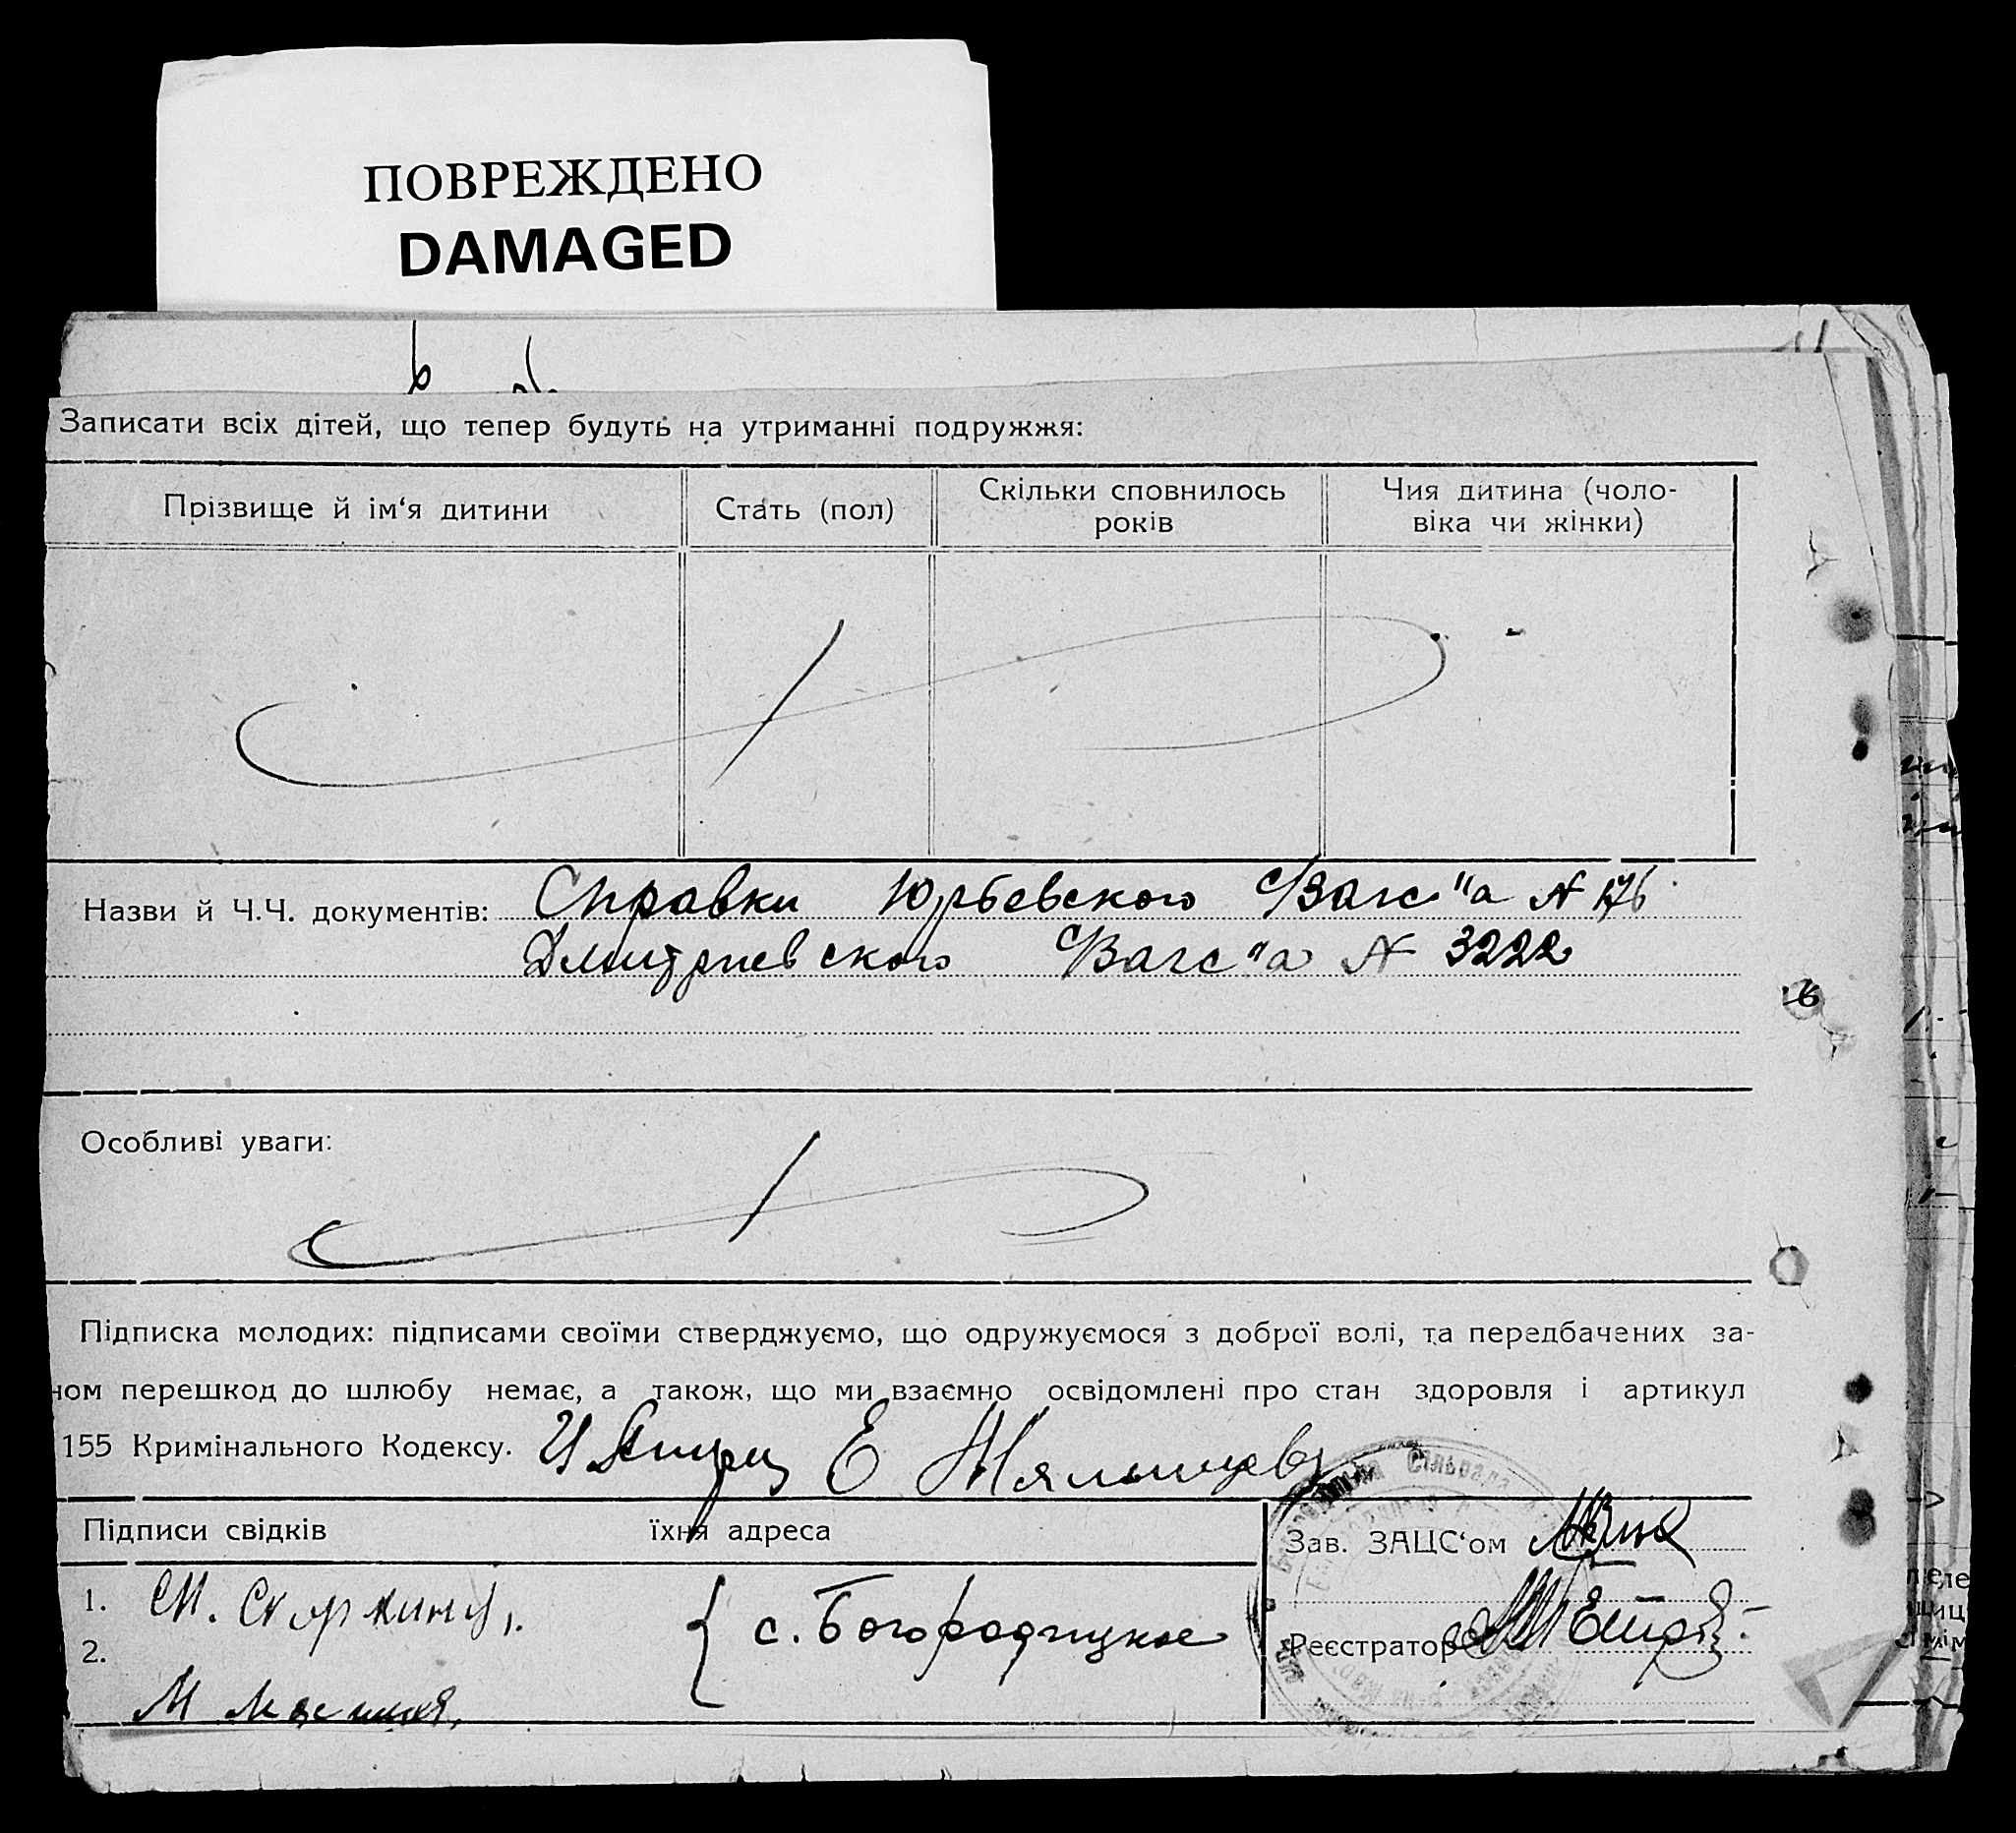 ПОВРЕЖДЕНО
DAMAGED
Записати всіх дітей, що тепер будуть на утриманні подружжя:
Прізвище й ім‘я дитини
Стать (пол)
Скільки сповнилось
років
Чия дитина (чоло-
віка чи жінки)
Назви й Ч.Ч. документів: Справки Юрьевского Загс"а N 176
Дмитриевского Загс"а N 3222
Особливі уваги:
Підписка молодих: підписами своїми стверджуємо, що одружуємося з доброї волі, та передбачених за-
ном перешкод до шлюбу немає, а також, що ми взаємно освідомлені про стан здоровля і артикул
155 Кримінального Кодексу. Е
Підписи свідків
їхня адреса
Зав. ЗАЦС‘ом
1.
{ с. Богородицкое
Реєстратор
2.
М